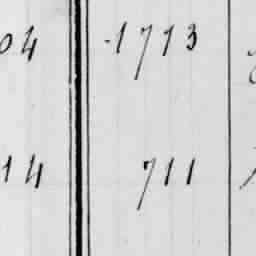 04 1713
14 711